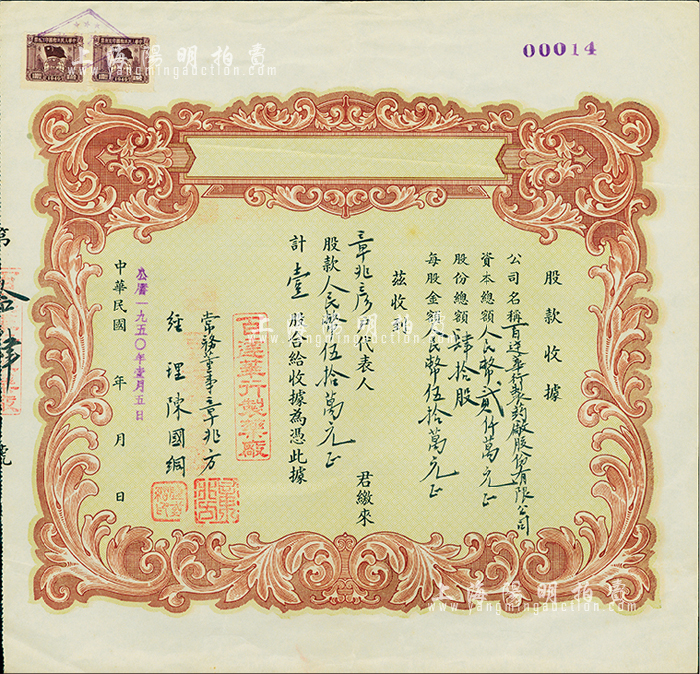 00014
股款收據
公司名稱百達華行製药廠股份有限公司
資本總額人民幣貳仟萬元正
股份總額肆拾股
每股金額人民幣伍拾萬元正
茲收到
章兆彥代表人 君繳來
股款人民幣伍拾萬元正
計壹股合給收據為憑此據
百達華行製藥廠
常務董事章兆方
經理陳國綱
公曆一九五〇年壹月五日
中華民國 年 月 日
第 肆 號
上海陽明拍賣
www.yangmingauction.com
上海陽明拍賣
www.yangmingauction.com
上海陽明拍賣
www.yangmingauction.com